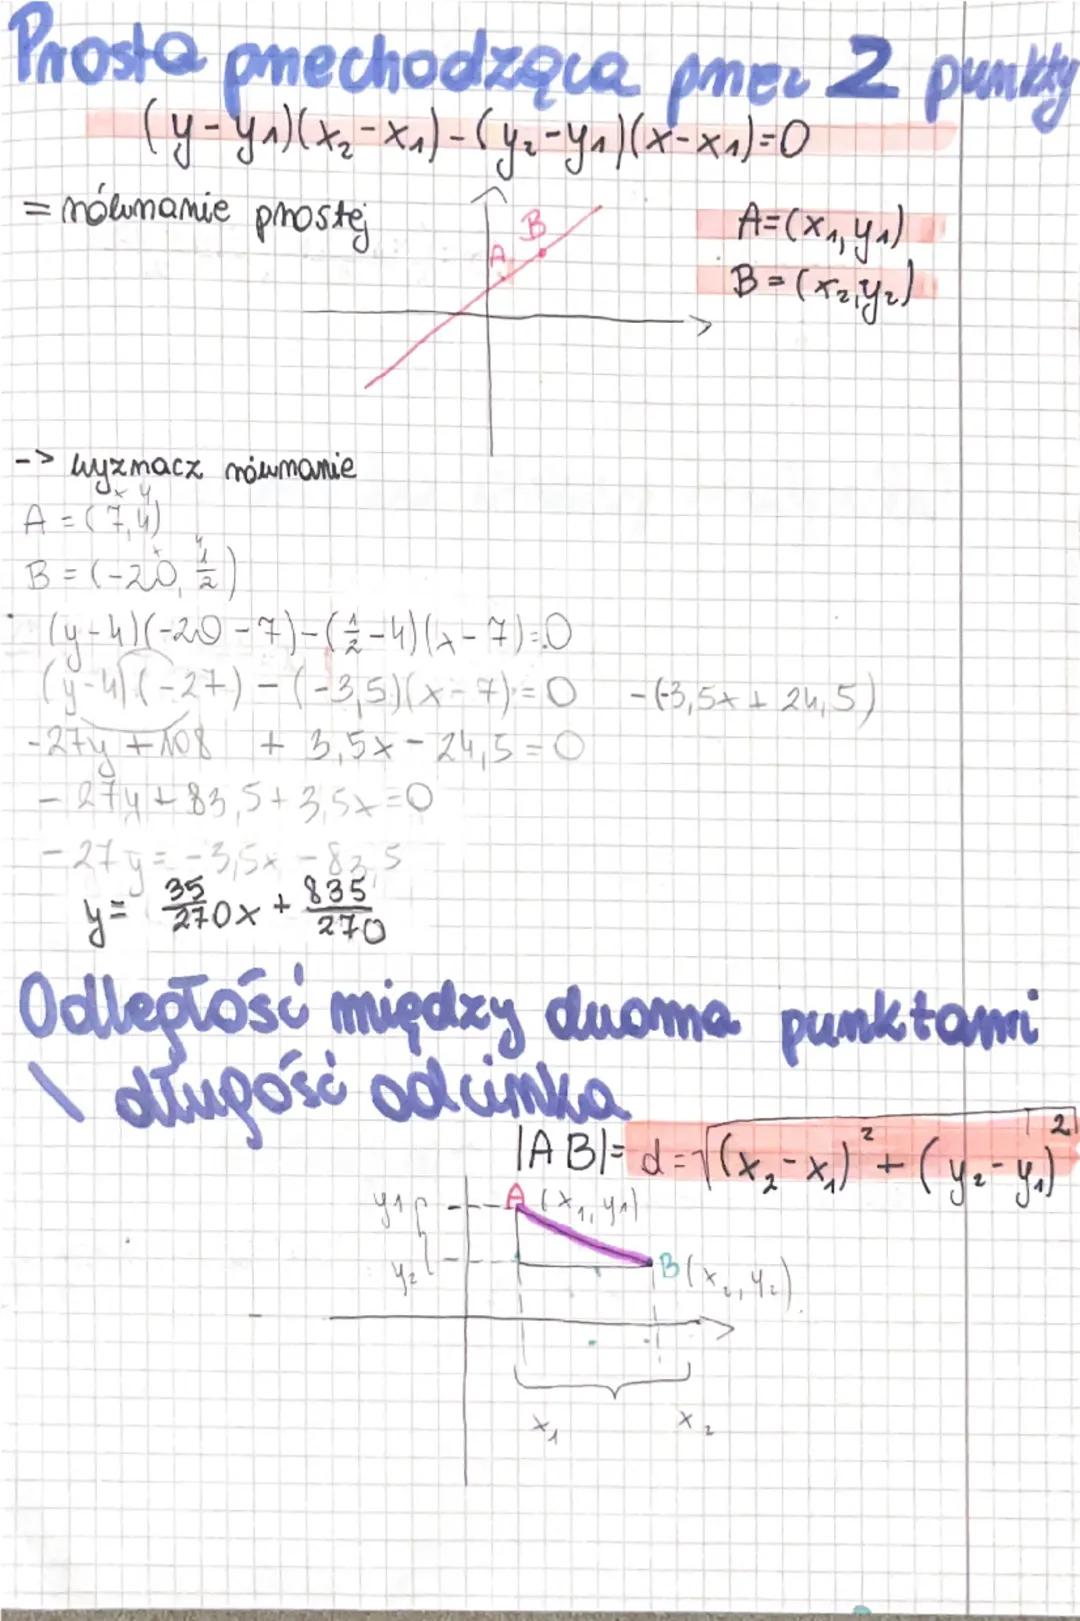 Prosta przechodząca przez 2 punkty
(y-y₁)(x₂-x₁)-(y₂-y₁)(x-x₁)=0
= równanie prostej
A=(x₁,y₁)
B=(x₂,y₂)
B
A
-> wyznacz równanie
x y
A=(7,4)
x y
B=(-20, 1/2)
(y-4)(-20-7)-(1/2-4)(x-7)=0
(y-4)(-27)-(-3,5)(x-7)=0 -(-3,5x+24,5)
-27y+108 + 3,5x-24,5=0
-27y+83,5+3,5x=0
-27y=-3,5x-83,5
y= 35/270x + 835/270
Odległość między dwoma punktami
\ długość odcinka
|AB|= d=√(x₂-x₁)²+(y₂-y₁)²
y₁ A (x₁,y₁)
y₂ B(x₂,y₂)
x₁ x₂